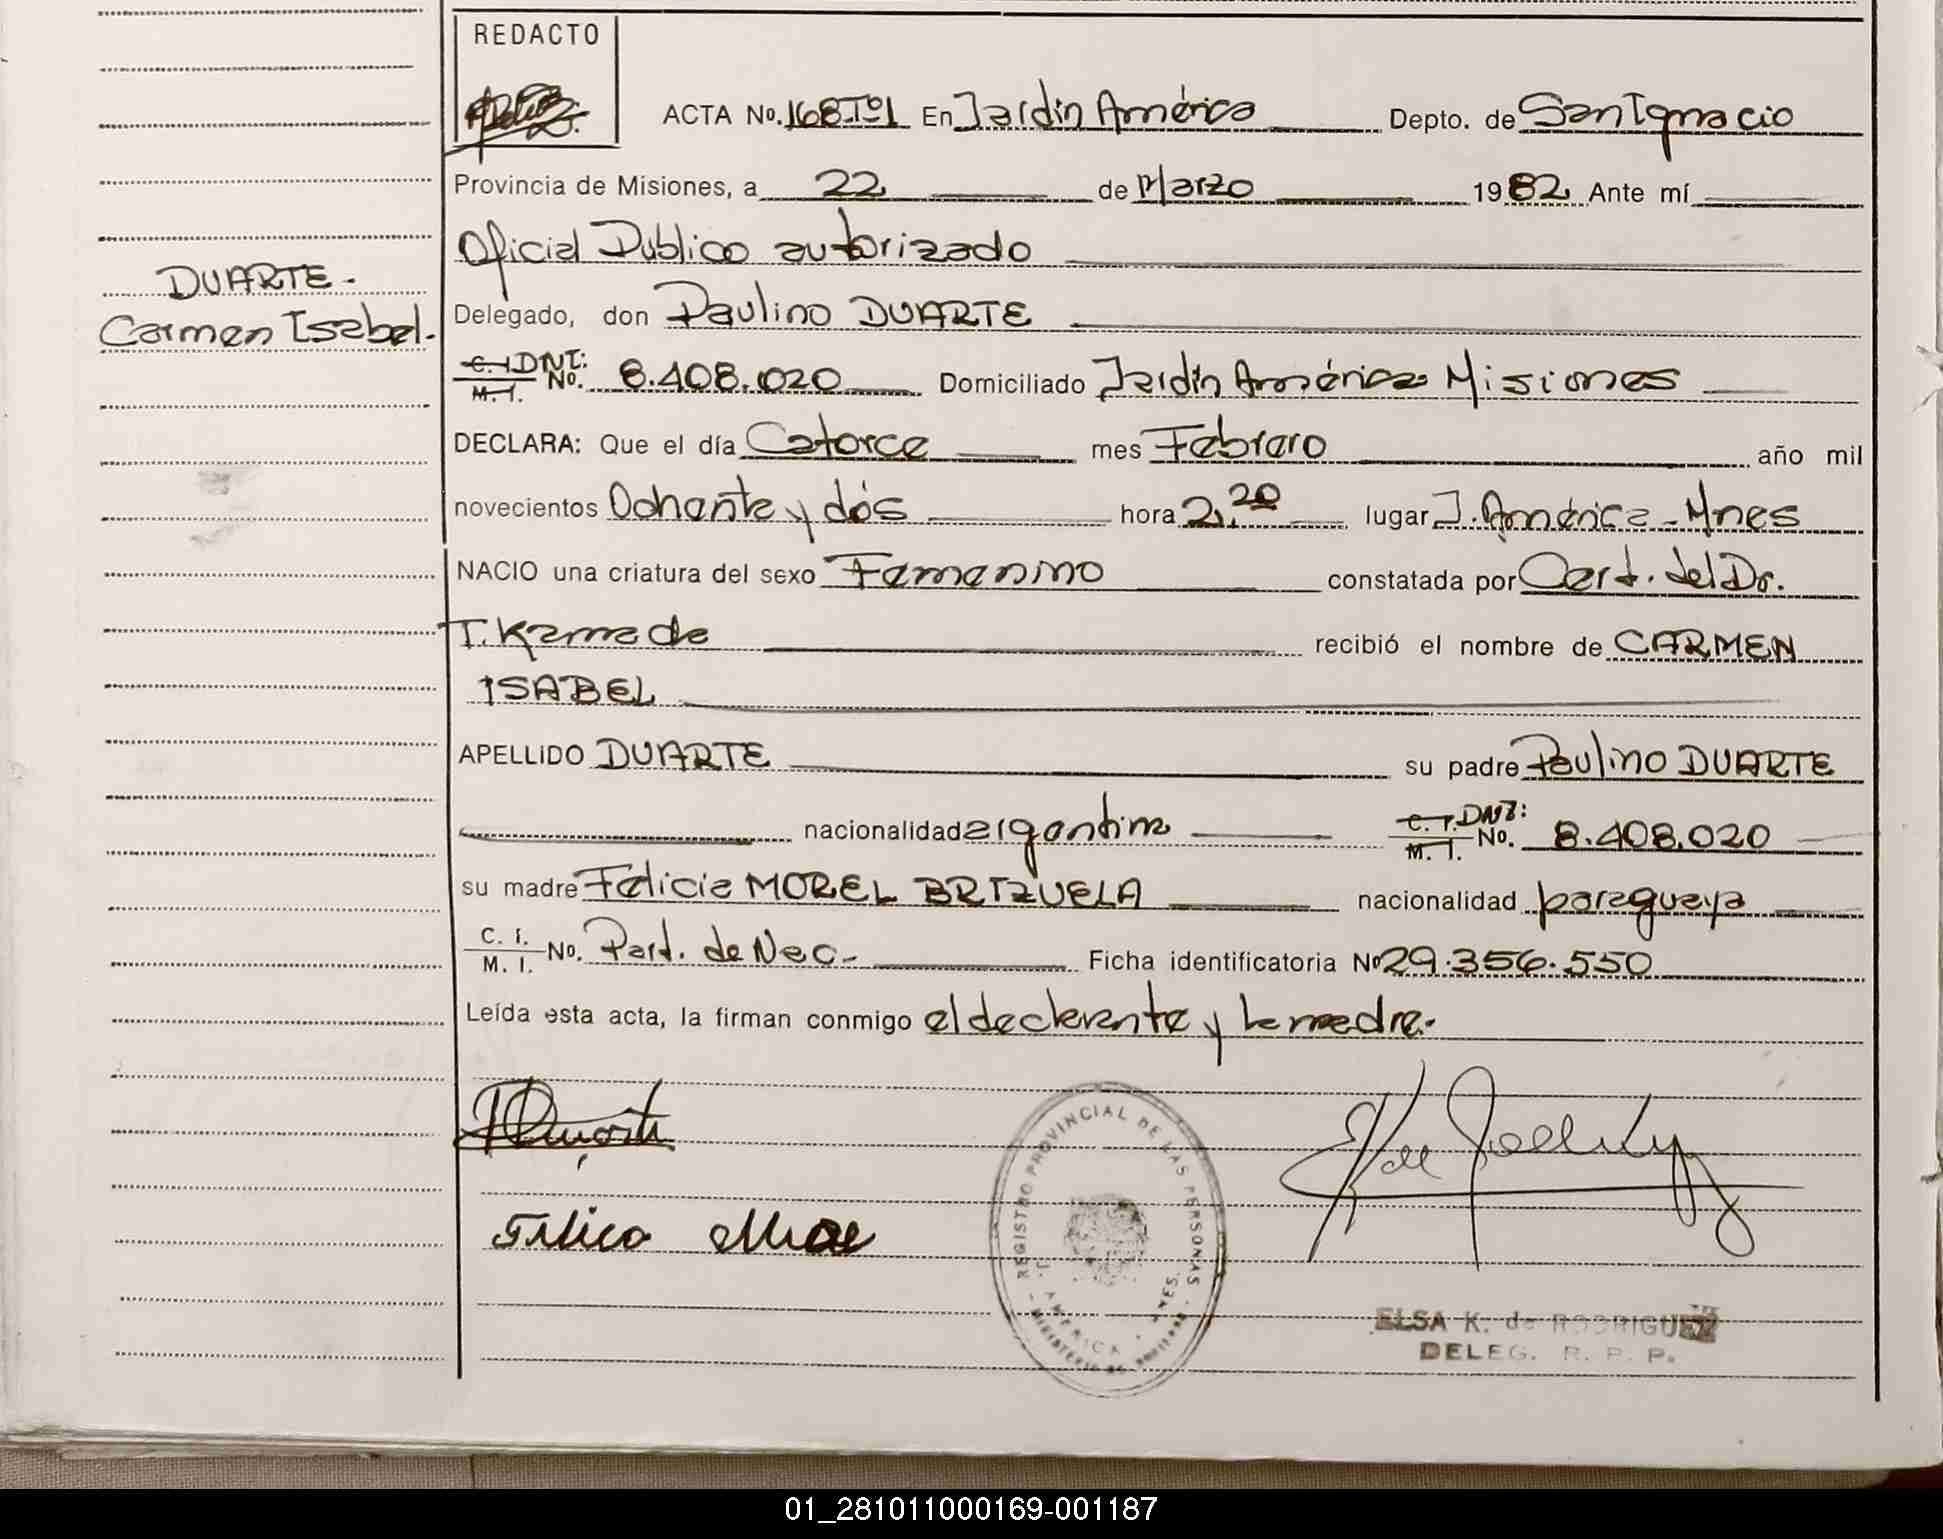 REDACTO
ACTA No. 168-Tº1 En Jardín América Depto. de San Ignacio
Provincia de Misiones, a 22 de Marzo 1982 Ante mí
Oficial Publico autorizado
DUARTE-
Carmen Isabel.
Delegado, don Paulino DUARTE
C. I. DNI: M. I. No. 8.408.020 Domiciliado Jardín América Misiones
DECLARA: Que el día Catorce mes Febrero año mil
novecientos Ochenta y dós hora 2,20 lugar J. América - Mnes
NACIO una criatura del sexo Femenino constatada por Cert. del Dr.
T. Kamada recibió el nombre de CARMEN
ISABEL
APELLIDO DUARTE su padre Paulino DUARTE
nacionalidad argentina C. I. DNI: M. I. No. 8.408.020
su madre Felicia MOREL BRIZUELA nacionalidad paraguaya
C. I. M. I. No. Part. de Nac- Ficha identificatoria No 29.356.550
Leída esta acta, la firman conmigo el declarante y la madre.-
REGISTRO PROVINCIAL DE LAS PERSONAS
AMERICA
ELSA K. de RODRIGUEZ
DELEG. R. P. P.
01_281011000169-001187